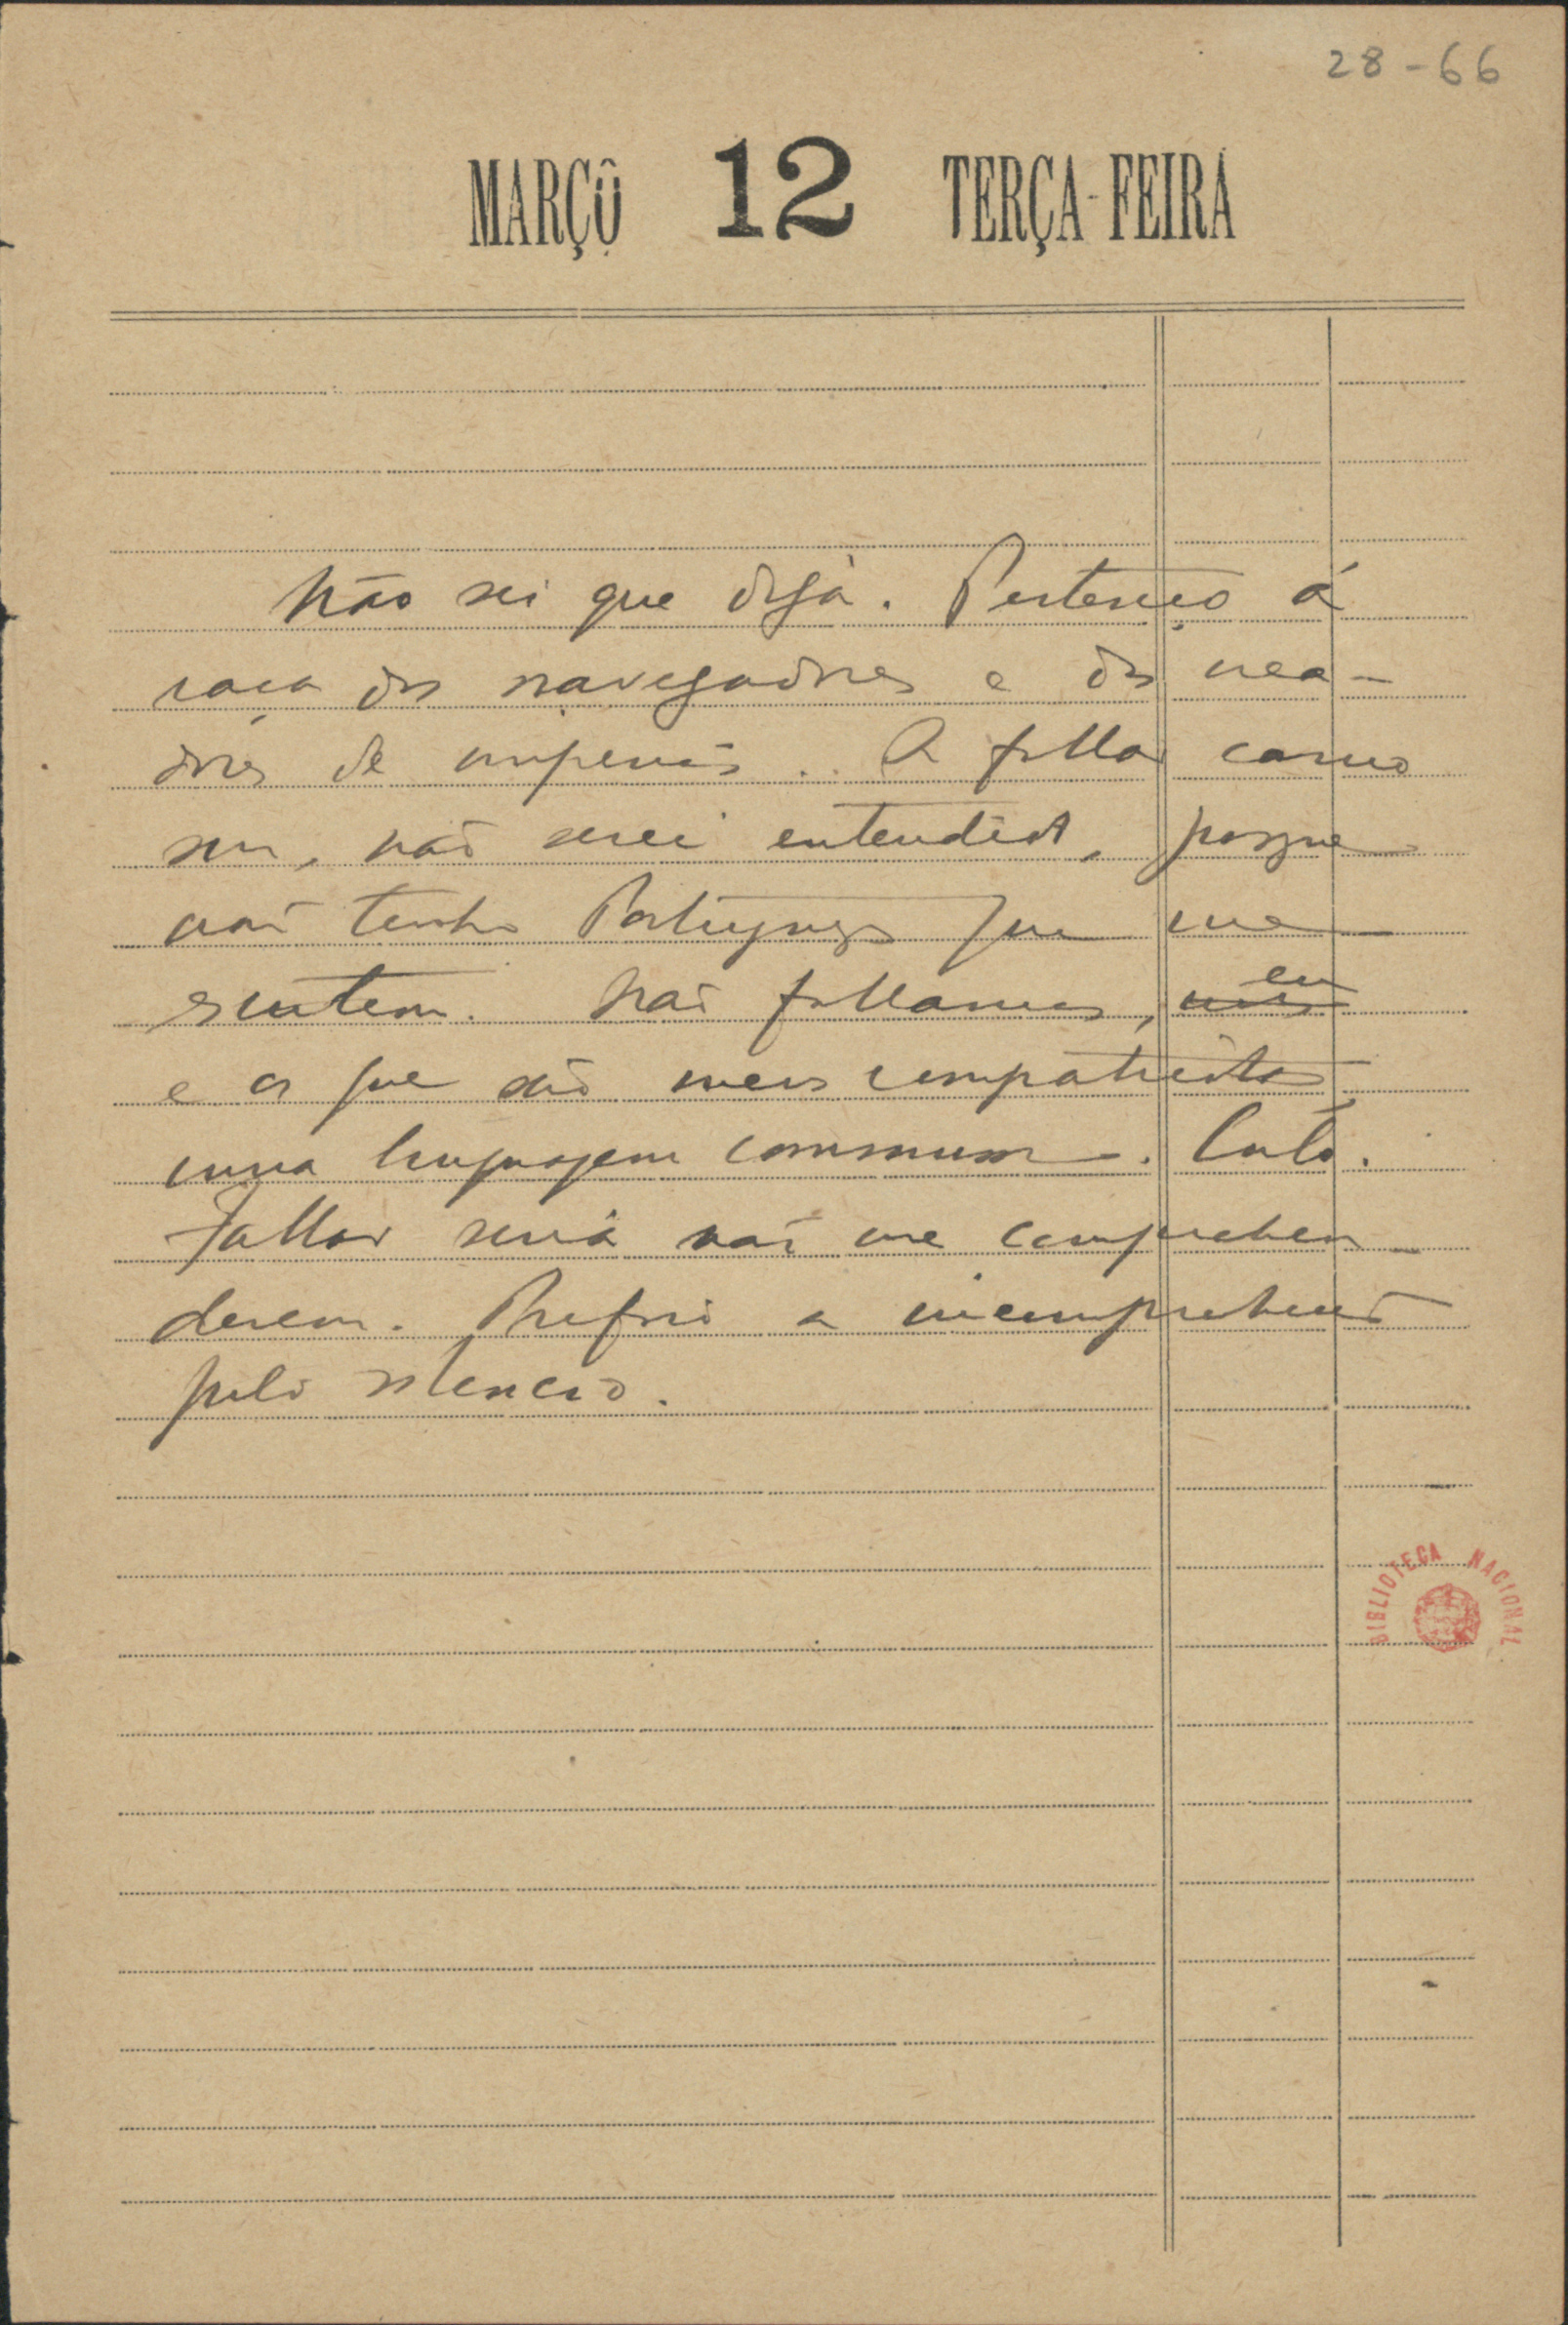 28-66
MARÇO 12 TERÇA-FEIRA
Não sei que diga. Pertenço á
raça dos navegadores e dos crea-
dores de imperios. A fallar como
sou, não serei entendido, porque
não tenho Portuguezes que me
escutem. Não fallamos, nós eu
e os que são meus compatriotas,
uma linguagem commum. Calo.
Fallar seria não me comprehen
derem. Prefiro a incomprehensão
pelo silencio.
BIBLIOTECA NACIONAL